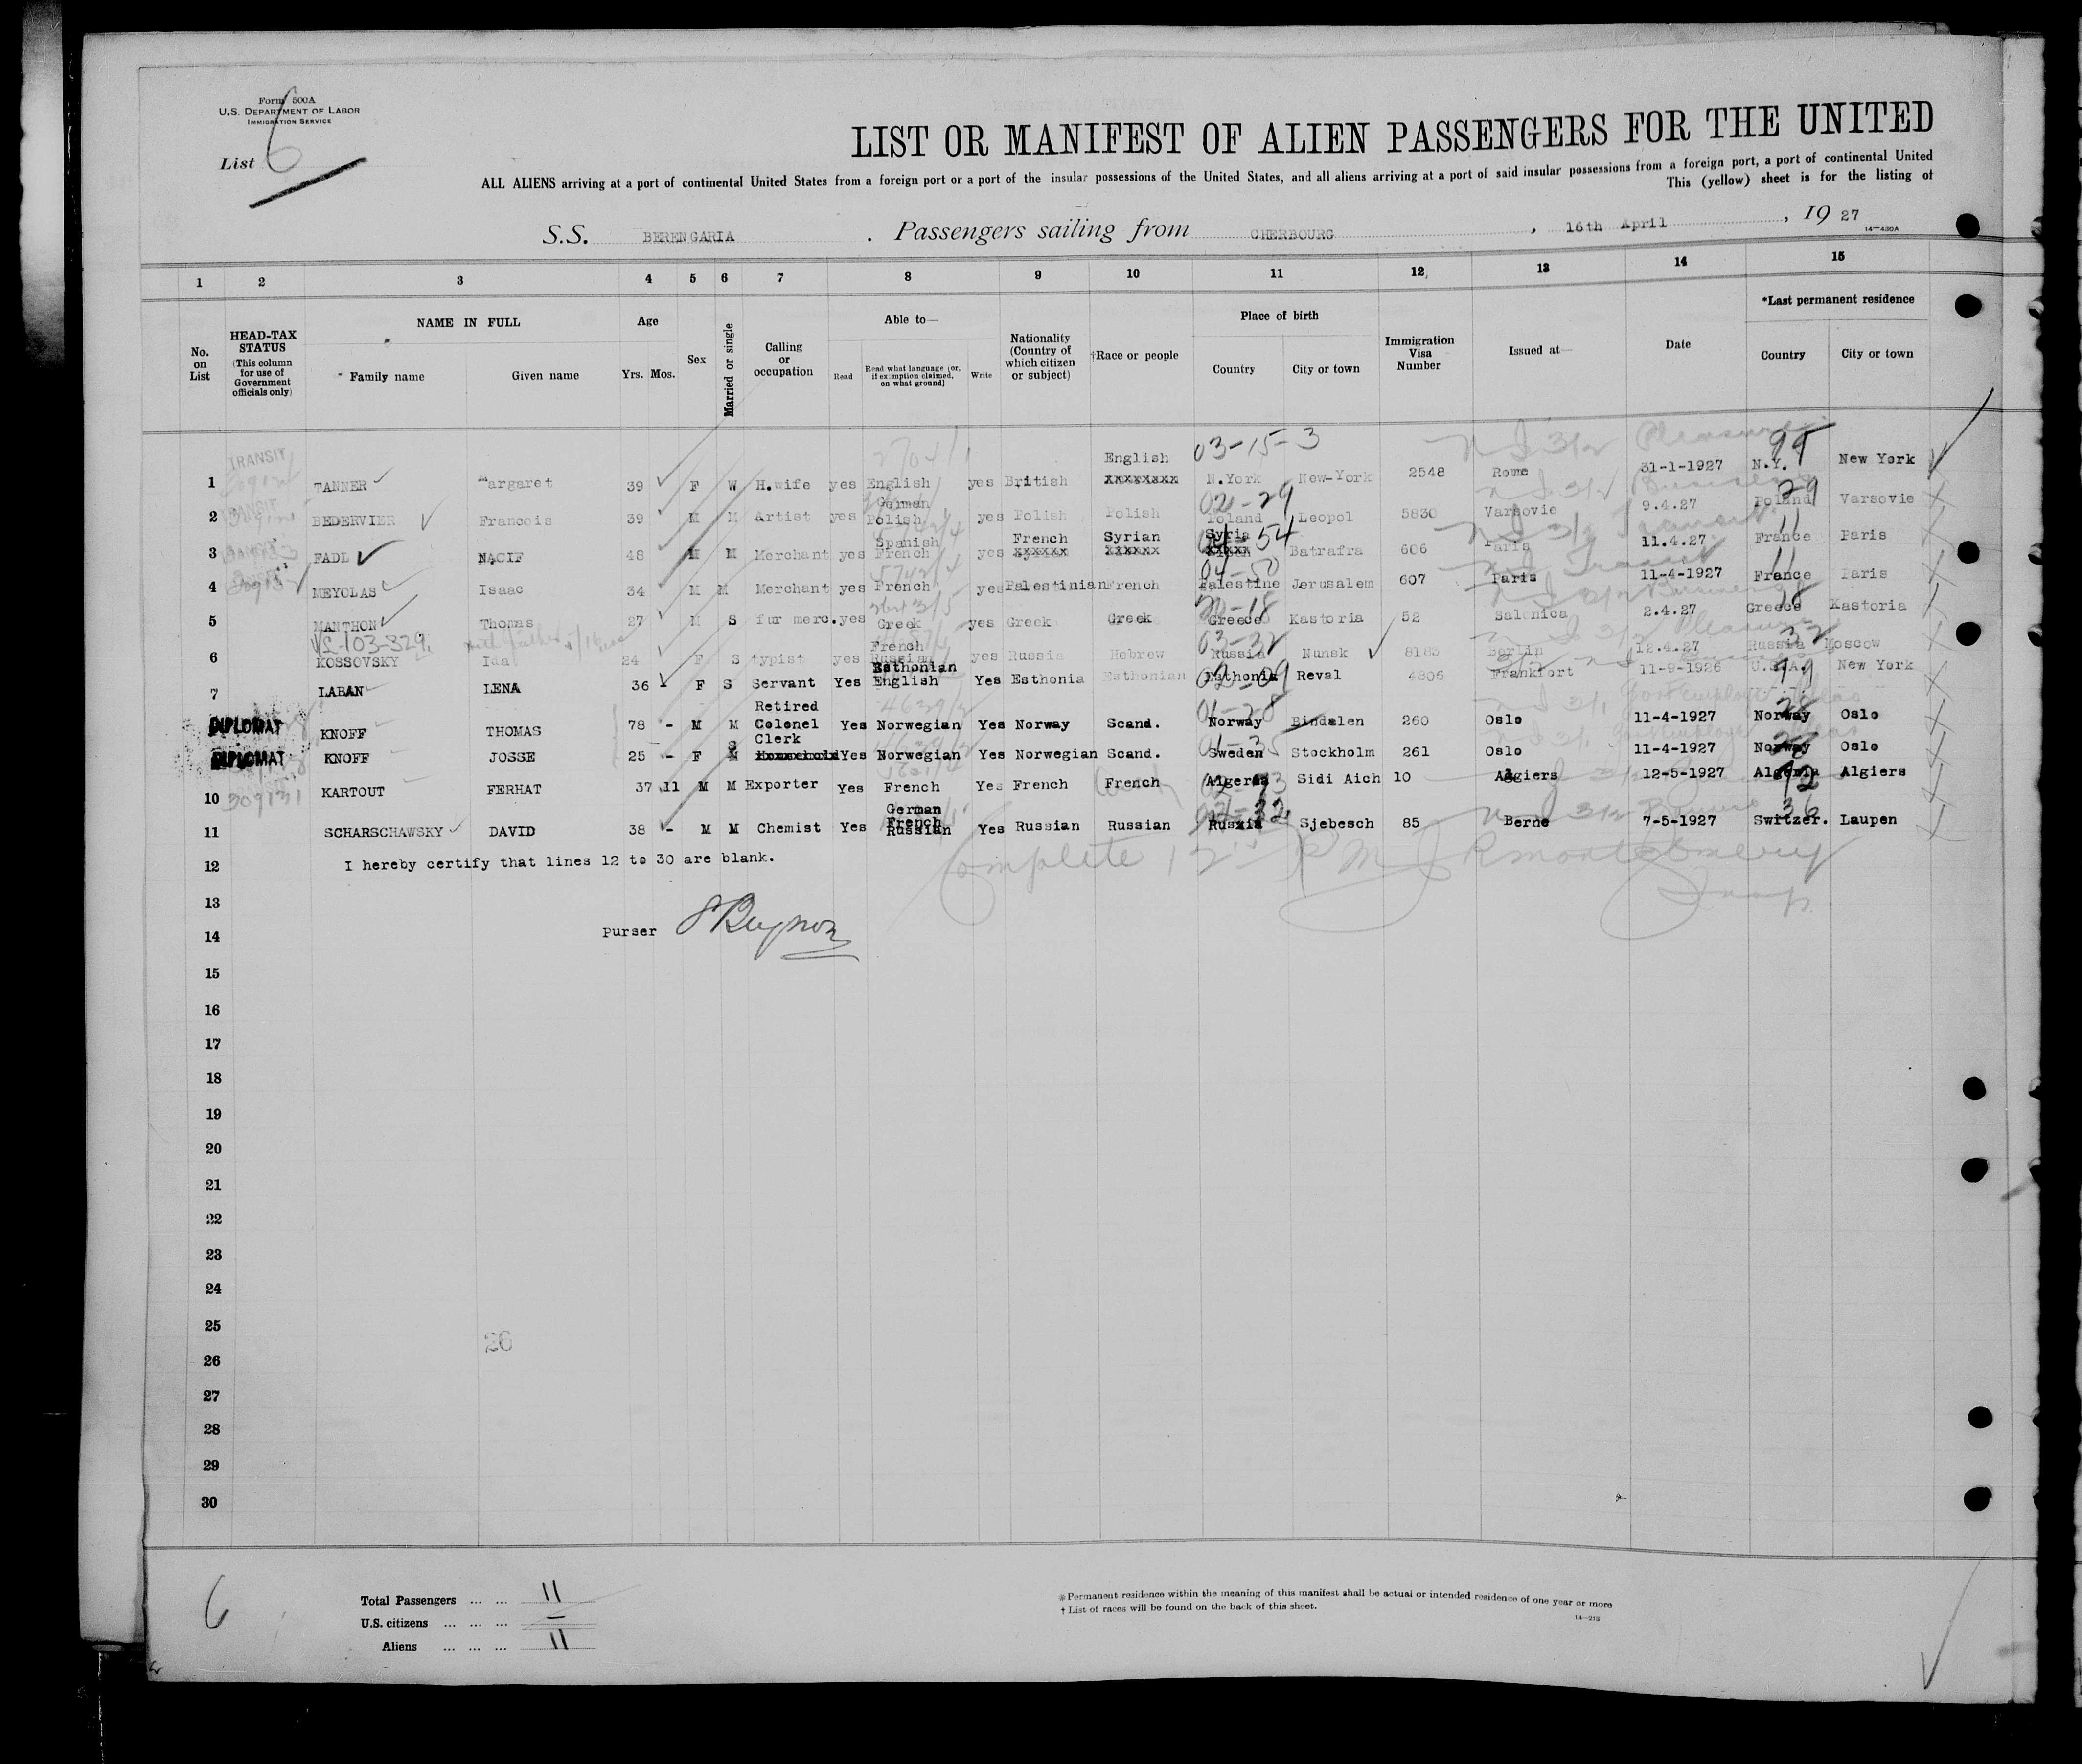 Form 500A
U.S. DEPARTMENT OF LABOR
IMMIGRATION SERVICE
List 6
LIST OR MANIFEST OF ALIEN PASSENGERS FOR THE UNITED
ALL ALIENS arriving at a port of continental United States from a foreign port or a port of the insular possessions of the United States, and all aliens arriving at a port of said insular possessions from a foreign port, a port of continental United
This (yellow) sheet is for the listing of
S.S. BERENGARIA . Passengers sailing from CHERBOURG , 16th April , 19 27
14—430A
1 2 3 4 5 6 7 8 9 10 11 12 13 14 15
No. on List
HEAD-TAX STATUS (This column for use of Government officials only)
NAME IN FULL
Family name Given name
Age
Yrs. Mos.
Sex
Married or single
Calling or occupation
Able to—
Read Read what language (or, if exemption claimed, on what ground) Write
Nationality (Country of which citizen or subject)
†Race or people
Place of birth
Country City or town
Immigration Visa Number
Issued at—
Date
*Last permanent residence
Country City or town
1 TRANSIT TANNER Margaret 39 F W H.wife yes English yes British English xxxxxxxx 03-15-3 N.York New-York 2548 Rome 31-1-1927 N.Y. New York
2 BEDERVIER Francois 39 M M Artist yes German Polish yes Polish Polish 02-29 Poland Leopol 5830 Varsovie 9.4.27 Poland Varsovie
3 FADL NACIF 48 M M Merchant yes Spanish French yes French xxxxxx Syrian xxxxxx Syria xxxxx Batrafra 606 Paris 11.4.27 France Paris
4 MEYOLAS Isaac 34 M M Merchant yes French yes Palestinian French Palestine Jerusalem 607 Paris 11-4-1927 France Paris
5 MANTHON Thomas 27 M S fur merc. yes Greek yes Greek Greek Greece Kastoria 52 Salonica 2.4.27 Greece Kastoria
6 KOSSOVSKY Ida 24 F S typist yes French Russian yes Russia Hebrew 03-32 Russia Nunsk 8183 Berlin 12.4.27 Russia Moscow
7 LABAN LENA 36 - F S Servant Yes Esthonian English Yes Esthonia Esthonian Esthonia Reval 4806 Frankfort 11-9-1926 U.S.A. New York
DIPLOMAT KNOFF THOMAS 78 - M M Retired Colonel Yes Norwegian Yes Norway Scand. Norway Bindalen 260 Oslo 11-4-1927 Norway Oslo
DIPLOMAT KNOFF JOSSE 25 - F S Clerk Yes Norwegian Yes Norwegian Scand. Sweden Stockholm 261 Oslo 11-4-1927 Norway Oslo
10 309131 KARTOUT FERHAT 37 11 M M Exporter Yes French Yes French French Algeria Sidi Aich 10 Algiers 12-5-1927 Algeria Algiers
11 SCHARSCHAWSKY DAVID 38 - M M Chemist Yes German French Russian Yes Russian Russian Russia Sjebesch 85 Berne 7-5-1927 Switzer. Laupen
12 I hereby certify that lines 12 to 30 are blank.
13
14 purser
15
16
17
18
19
20
21
22
23
24
25
26
26
27
28
29
30
6
Total Passengers ... ... 11
U.S. citizens ... ... ... —
Aliens ... ... ... 11
* Permanent residence within the meaning of this manifest shall be actual or intended residence of one year or more
† List of races will be found on the back of this sheet.
14—213